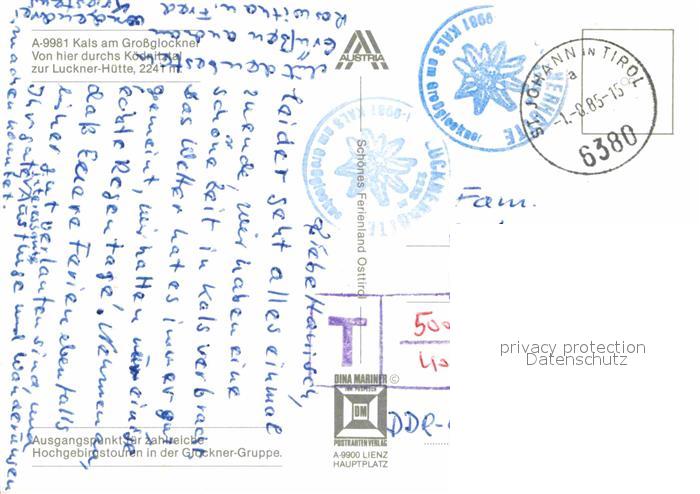 A-9981 Kals am Großglockner
Von hier durchs Ködnitztal
zur Luckner-Hütte, 2241 m.
AUSTRIA
Schönes Ferienland Osttirol
ST. JOHANN IN TIROL
a
-1.-8.85-15
6380
A-9981 KALS am Großglockner
LUCKNERHÜTTE
Liebe
leider geht alles einmal
zuende, wir haben eine
schöne Zeit in Kals verbracht
das Wetter hat es immer gut
gemeint, wir hatten nur einige
echte Regentage. Nehmen an,
daß Eure Ferien ebenfalls
gut verlaufen sind, und
Ausflüge und Wanderungen
machen konntet.
Grüßen auch
Roswitha u.
Fam.
T
DDR-
DINA MARINER ©
DM
POSTKARTENVERLAG
A-9900 LIENZ
HAUPTPLATZ
Ausgangspunkt für zahlreiche
Hochgebirgstouren in der Glockner-Gruppe.
privacy protection
Datenschutz